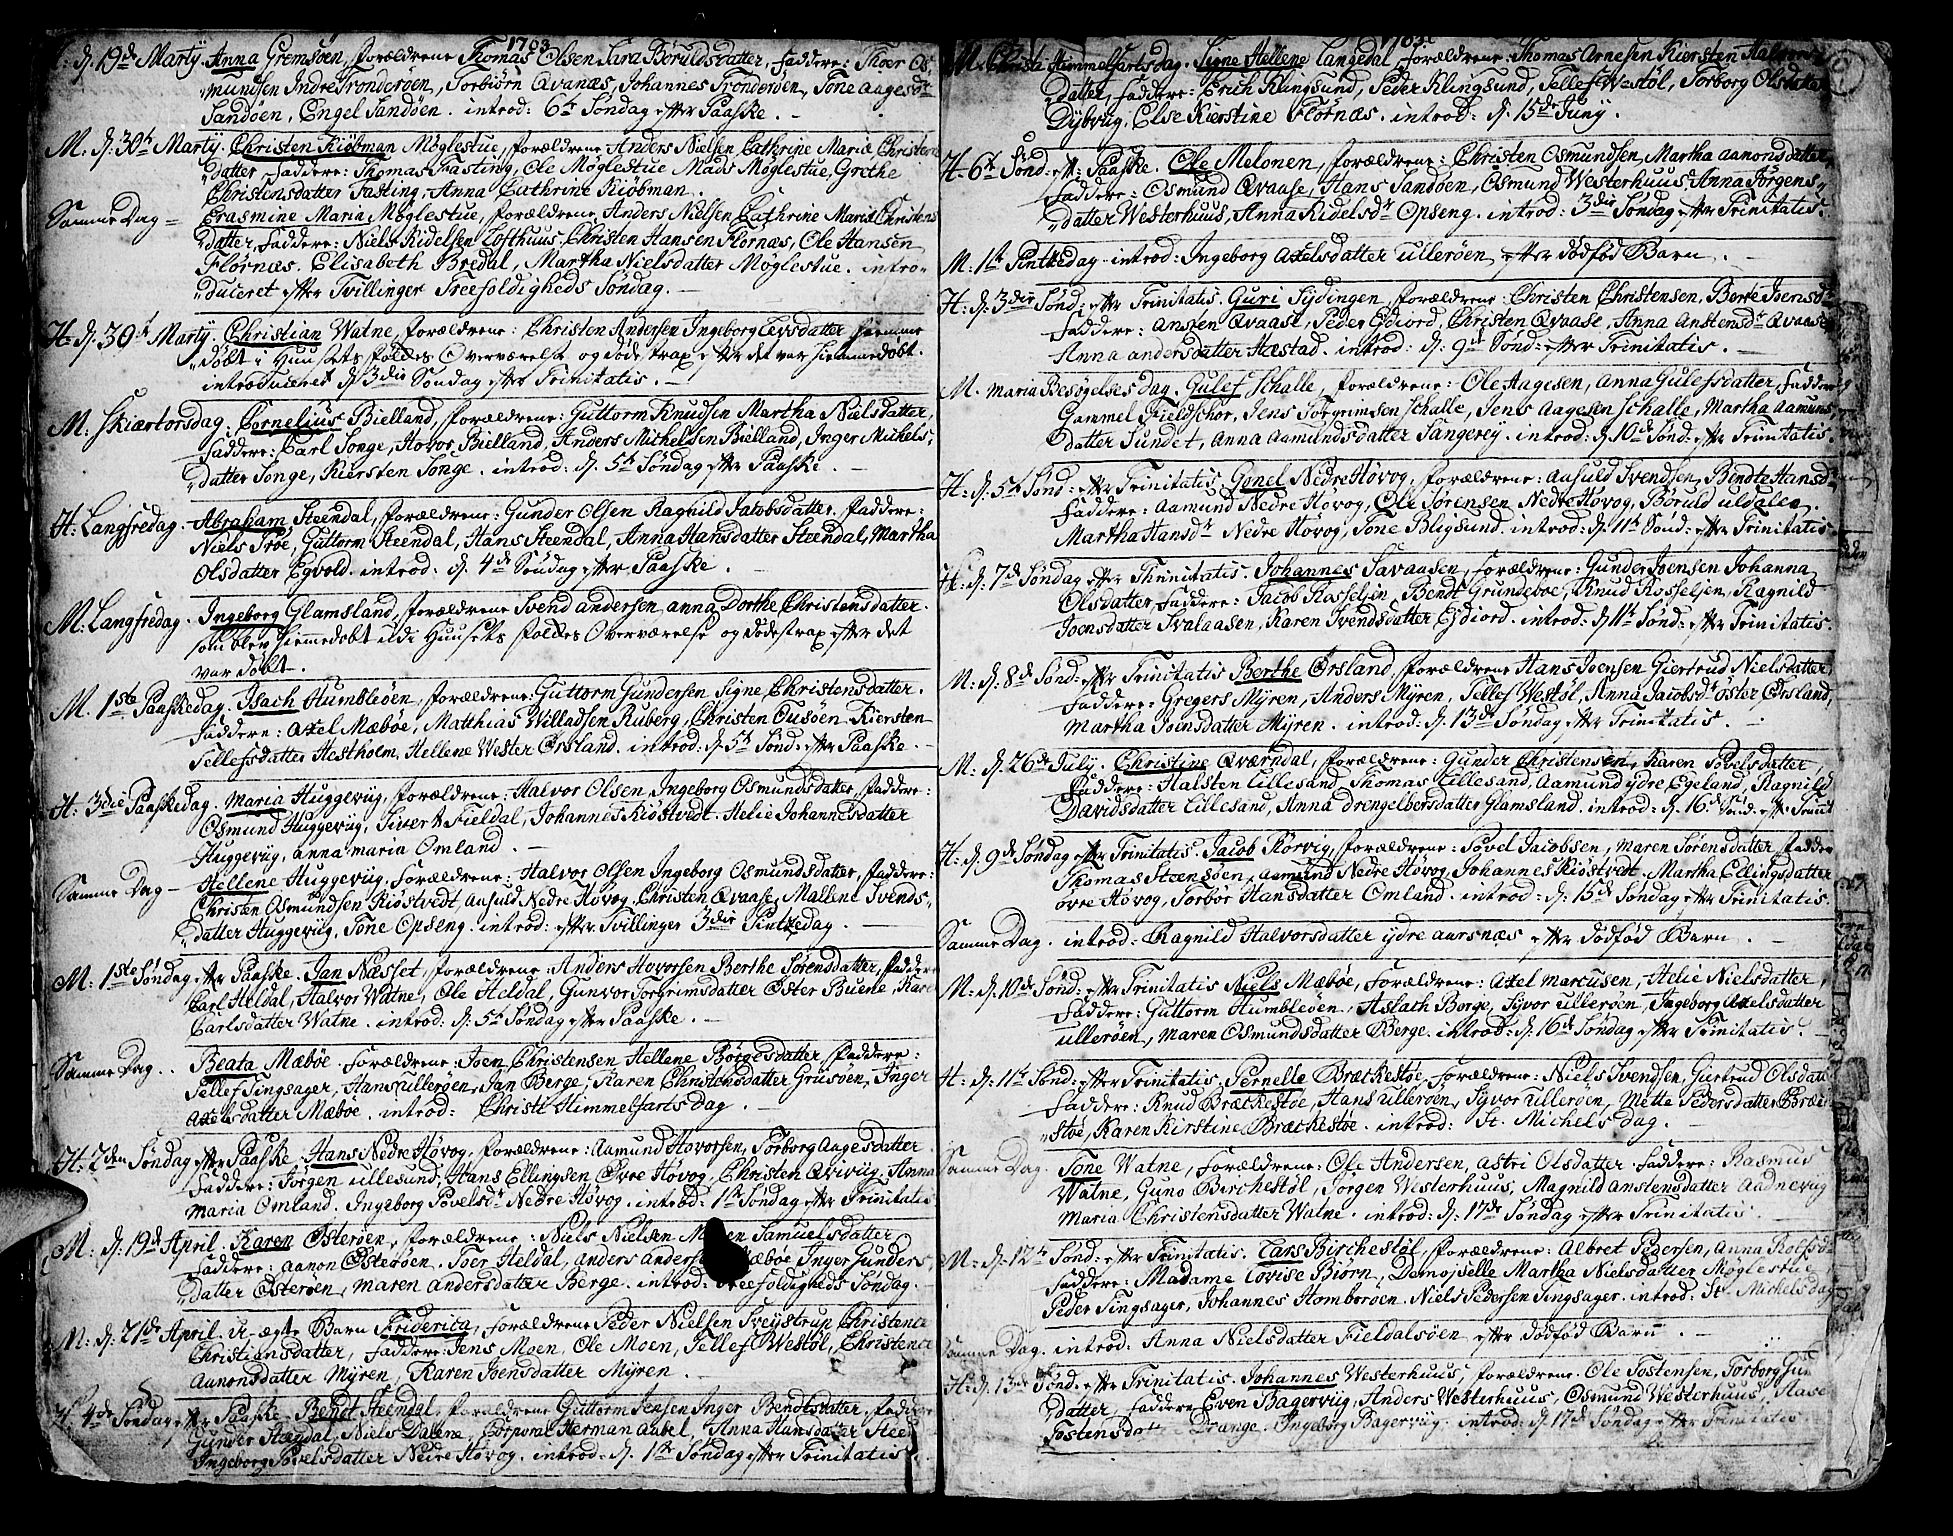 1763
d. 19de Martÿ. Anna Gremsöen, forældrene Thomas Olsen Sara Böruldsdatter, Faddere: Thoer Os-
mundsen Indre Tronderöen, Torbiörn Qvanæs, Johannes Tronderöen, Tone Aagesdtr
Sandöen, Engel Sandöen. introd: 6te Söndag efter Paaske.
M. d. 30te Martÿ. Christen Kiöbman Möglestue, forældrene Anders Nielsen Cathrine Marie Christens
datter, Faddere: Thomas Fasting, Ole Möglestue Mads Möglestue, Grethe
Christensdatter Fasting, Anna Cathrine Kiöbman.
Samme Dag = Erasmine Maria Möglestue, forældrene Anders Nielsen Cathrine Marie Christens
datter, Faddere: Niels Ridelsen Lofthuus, Christen Hansen Flörnæs, Ole Hansen
Flörnæs. Elisabeth Bredal, Martha Nielsdatter Möglestue. intro-
duceret efter Tvillinger Treefoldigheds Söndag.
H. d. 30te Martÿ. Christian Watne, forældrene: Christen Andersen Ingeborg Levsdatter hiemme
döbt i Huusets folckes Overværelse og döde strax efter det var hiemmedöbt.
introduceret d. 3die Söndag efter Trinitatis.
M. Skiærtorsdag. Cornelius Bielland, forældrene: Guttorm Knudsen Martha Nielsdatter,
Faddere: Carl Songe, Hovor Bielland, Anders Michelsen Bielland, Inger Mickels-
datter Songe, Kiersten Songe. introd: d. 5te Söndag efter Paaske.
H. Langfredag. Abraham Steendal, forældrene: Gunder Olsen Ragnild Jacobsdatter. Faddere:
Niels Tröe, Guttorm Steendal, Hans Steendal, Anna Hansdatter Steendal, Martha
Olsdatter Egvold. introd: d. 4de Söndag efter Paaske.
M. Langfredag. Ingeborg Glamsland, forældrene Svend Andersen, Anna Dorthe Christensdatter.
som blev hiemmedöbt i Huusets folckes Overværelse og döde strax efter det
var döbt.
M. 1ste Paaskedag. Isach Humbleöen, forældrene: Guttorm Gundersen Signe Christensdatter.
Faddere: Axel Mæböe, Matthias Willadsen Ruberg, Christen Tusöen. Kiersten
Tellefsdatter Hestholm, Hellene Wester Örsland. introd: d. 5te Sönd: efter Paaske.
H. 3die Paaskedag. Maria Huggevüg, forældrene: Halvor Olsen, Ingeborg Osmundsdatter, Faddere:
Osmund Huggevüg, Sivert Fieldal, Johannes Kiöstvedt. Helie Johannesdatter
Huggevüg, Anna Maria Omland.
Samme Dag – Hellene Huggevüg, Forældrene: Halvor Olsen Ingeborg Osmundsdatter, Faddere:
Christen Osmundsen Kiöstvedt, Ausuld Nedre Hövog, Christen Qvaase, Mallene Svends-
datter Huggevüg, Tone Opseng. introd: efter Tvillinger 3die Pintzedag.
M. 1ste Söndag efter Paaske. Jan Næsset, forældrene: Anders Hovorsen Berthe Sörensdatter, Faddere
Carl Heldal, Halvor Watne, Ole Heldal, Gunvor Torgrimsdatter Öster Buene, Kare
Carlsdatter Watne. introd: d. 5te Söndag efter Paaske.
Samme Dag. Beata Mæböe. Forældrene: Joen Christensen Hellene Börgesdatter, Faddere:
Tellef Tingsager, Hans Ulleröen, Jan Berge, Karen Christensdatter Grusöen, Inger
Axelsdatter Mæböe. introd: Christi Himmelfarts Dag.
H. 2den Söndag efter Paaske. Hans Nedre Hövog. forældrene: Aamund Hovorsen, Torborg Aagesdatter
Faddere: Jörgen Ullesund, Hans Ellingsen Övre Hövog, Christen Qvivüg, Anna
Maria Omland. Ingeborg Povelsdr Nedre Hövog. introd: 1te Söndag efter Trinitatis
M. d. 19de April. Karen Österöen, forældrene: Niels Nielsen Samuelsdatter
Faddere: Aanon Österöen. Toer Heldal, Anders Anders Mæböe, Inger Gunders-
datter Österöen, Maren Andersdatter Berge. introd: Treefoldigheds Söndag.
M. d. 21de April. U-ægte Barn Friderica, forældrene Peder Nielsen Sveÿstrup Christence
Christiansdatter, Faddere: Jens Moen, Ole Moen, Tellef Westöl, Christence
Aanonsdatter Myren, Karen Joensdatter Myren.
H. 4de Söndag efter Paaske. Bendt Steendal, forældrene Guttorm Jensen Inger Bendtsdatter, Faddere
Gunder Steendal, Niels Dalene, Corporal Herman Aabel, Anna Hansdatter Steen
Ingeborg Povelsdatter Nedre Hövog. introd: d. 1te Söndag efter Trinitatis.
1763
M. Christi Himmelfartsdag. Signe Hellene Langedal, forældrene: Thomas Arnesen Kiersten Halvors
datter, Faddere: Erich Klingsund, Peder Klingsund, Tellef Westöl, Torborg Olsdatter
Dybvüg, Else Kierstine Flörnæs. introd: d. 15de Junÿ.
H. 6te Sönd: eft: Paaske. Ole Melonen, forældrene: Christen Osmundsen, Martha Aanonsdatter,
Faddere: Osmund Qvaase, Hans Sandöen, Osmund Westerhuus Anna Jörgens-
datter Westerhuus, Anna Ridelsdr Opseng. introd: 3die Söndag efter Trinitatis.
M. 1te Pintzedag. introd: Ingeborg Axelsdatter Ulleröen efter dödföd Barn.
H. d. 3die Sönd: efter Trinitatis. Guri Sÿdingen, forældrene: Christen Christensen, Berte Joensdr
Faddere: Ansten Qvaase, Peder Esdiord, Christen Qvaase, Anna Anstensdr Qvaase
Anna Andersdatter Hæstad. introd: d. 9de Sönd: efter Trinitatis.
M. Maria Besögelses Dag. Gulef Schalle, forældrene: Ole Aagesen, Anna Gulefsdatter, Faddere
Gammel Fieldschor, Jens Torgrimsen Schalle, Jens Aagesen Schalle, Martha Aamunds
datter Sundet, Anna Aamundsdatter Sangereÿ. introd: d. 10de Sönd: efter Trinitatis.
H. d. 5te Sönd: efter Trinitatis. Gonel Nedre Hövog, forældrene: Ausuld Svendsen, Bendte Hansdr
Faddere: Aamund Nedre Hövog, Ole Sörensen Nedre Hövog, Böruld Uldalen,
Martha Hansdr Nedre Hövog, Tone Bligsund. introd: d. 11te Sönd: efter Trinitatis
H. d. 7de Söndag efter Trinitatis. Johannes Savaasen, Forældrene: Gunder Joensen Johanna
Olsdatter, Faddere: Jacob Rosseljen, Bendt Grundeboe, Knud Rosseljen, Ragnild
Joensdatter Svalaasen, Karen Svendsdatter Esdiord. introd: d. 11te Sönd: efter Trinitatis.
M. d. 8de Sönd: efter Trinitatis Berthe Örsland, forældrene Hans Joensen Giertrud Nielsdatter,
Faddere: Gregers Myren, Anders Myren, Tellef Westöl, Anna Jacobsdr Öster Örsland,
Martha Joensdatter Myren. introd: d. 13de Söndag efter Trinitatis.
M. d. 26de Julÿ. Christine Qværndal, forældrene: Gunder Christensen, Karen Povelsdatter
Faddere: Halsten Lillesand, Thomas Lillesand, Aamund Ydre Egeland, Ragnild
Davidsdatter Lillesand, Anna Drengelbersdatter Glamsland. introd: d. 16de Sönd: eft: Trinit
H. d. 9de Söndag efter Trinitatis. Jacob Körvig, forældrene: Povel Jacobsen, Maren Sörensdatter, Fadder
Thomas Steensöen, Aamund Nedre Hövog, Johannes Kiöstvedt. Martha Ellingsdatter
Övre Hövog, Torbör Hansdatter Omland. introd: d. 15de Söndag efter Trinitatis.
Samme Dag. introd: Ragnild Halvorsdatter Ydre Aursnæs efter dödföd Barn.
M. d. 10de Sönd: efter Trinitatis Niels Mæböe, Forældrene: Axel Marcusen, Helie Nielsdatter,
Faddere: Guttorm Humbleöen, Aslach Berge, Syvor Ulleröen, Ingeborg Axelsdatter
Ulleröen, Maren Osmundsdatter Berge. introd: d. 16de Söndag efter Trinitatis.
H. d. 11te Sönd: efter Trinitatis. Pernelle Bræckestöe, Forældrene: Niels Svendsen, Giertrud Olsdatt
Faddere: Knud Bræckestöe, Hans Ulleröen, Syvor Ulleröen, Mette Pedersdatter Bræcke
stöe, Karen Kirstine Bræckestöe. introd: St. Michels Dag.
Samme Dag. Tone Watne, Forældrene: Ole Andersen, Astri Olsdatter. Faddere: Rasmus
Watne, Guno Birchestöl, Jörgen Westerhuus, Magnild Anstensdatter Aadnevüg
Maria Christensdatter Watne. introd: d. 17de Söndag efter Trinitatis.
M. d. 12te Sönd: efter Trinitatis. Lars Birchestöl, forældrene: Albret Pedersen, Anna Rolfsd
Faddere: Madame Lovise Biörn, Demoiselle Martha Nielsdatter Möglestue
Peder Tingsager, Johannes Homboröen. Niels Pedersen Tingsager. introd: St. Michelsdag
Samme Dag. introd: Anna Nielsdatter Fieldalsöen efter dödföd Barn.
H. d. 13de Sönd: efter Trinitatis. Johannes Westerhuus, forældrene. Ole Tostensen, Torborg Gun
datter, Faddere Even Bagervüg, Anders Westerhuus, Osmund Westerhuus, Aase
Tostensd Drange. Ingeborg Bagervüg. introd: d. 17de Söndag efter Trinitatis